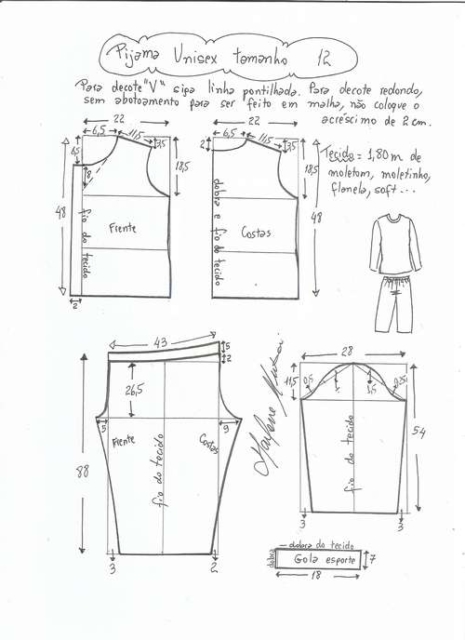 Pijama Unisex tamanho 12
Para decote "V" siga linha pontilhada. Para decote redondo,
sem abotoamento para ser feito em malha, não coloque o
acréscimo de 2 cm.
22
6,5
11,5
3,5
6,5
8
18,5
48
fio do tecido
Frente
2
22
6,5
11,5
3,5
2
18,5
48
dobra e fio do tecido
Costas
Tecido = 1,80 m de
moletom, moletinho,
flanela, soft...
43
5
2
26,5
5
9
Frente
Costas
fio do tecido
88
3
2
28
11,5
0,5
54
fio do tecido
3
3
dobra do tecido
dobra
Gola esporte
7
18